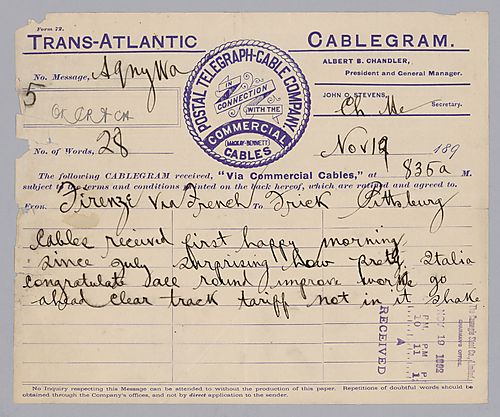 Form 72.
TRANS-ATLANTIC CABLEGRAM.
ALBERT B. CHANDLER,
President and General Manager.
JOHN O. STEVENS,
Secretary.
POSTAL TELEGRAPH-CABLE COMPANY
IN
CONNECTION
WITH THE
COMMERCIAL
(MACKAY-BENNETT)
CABLES
No. Message,
5
No. of Words, 28
Nov 19 189
The following CABLEGRAM received, "Via Commercial Cables," at 835a M.
subject to the terms and conditions printed on the back hereof, which are ratified and agreed to.
From Firenze Via French To Frick Pittsburg
Cables received first happy morning
since July surprising how pretty Italia
congratulate all round improve works go
ahead clear track tariff not in it shake
The Carnegie Steel Co., Limited
NOV 19 1892
RECEIVED
No Inquiry respecting this Message can be attended to without the production of this paper. Repetitions of doubtful words should be
obtained through the Company's offices, and not by direct application to the sender.